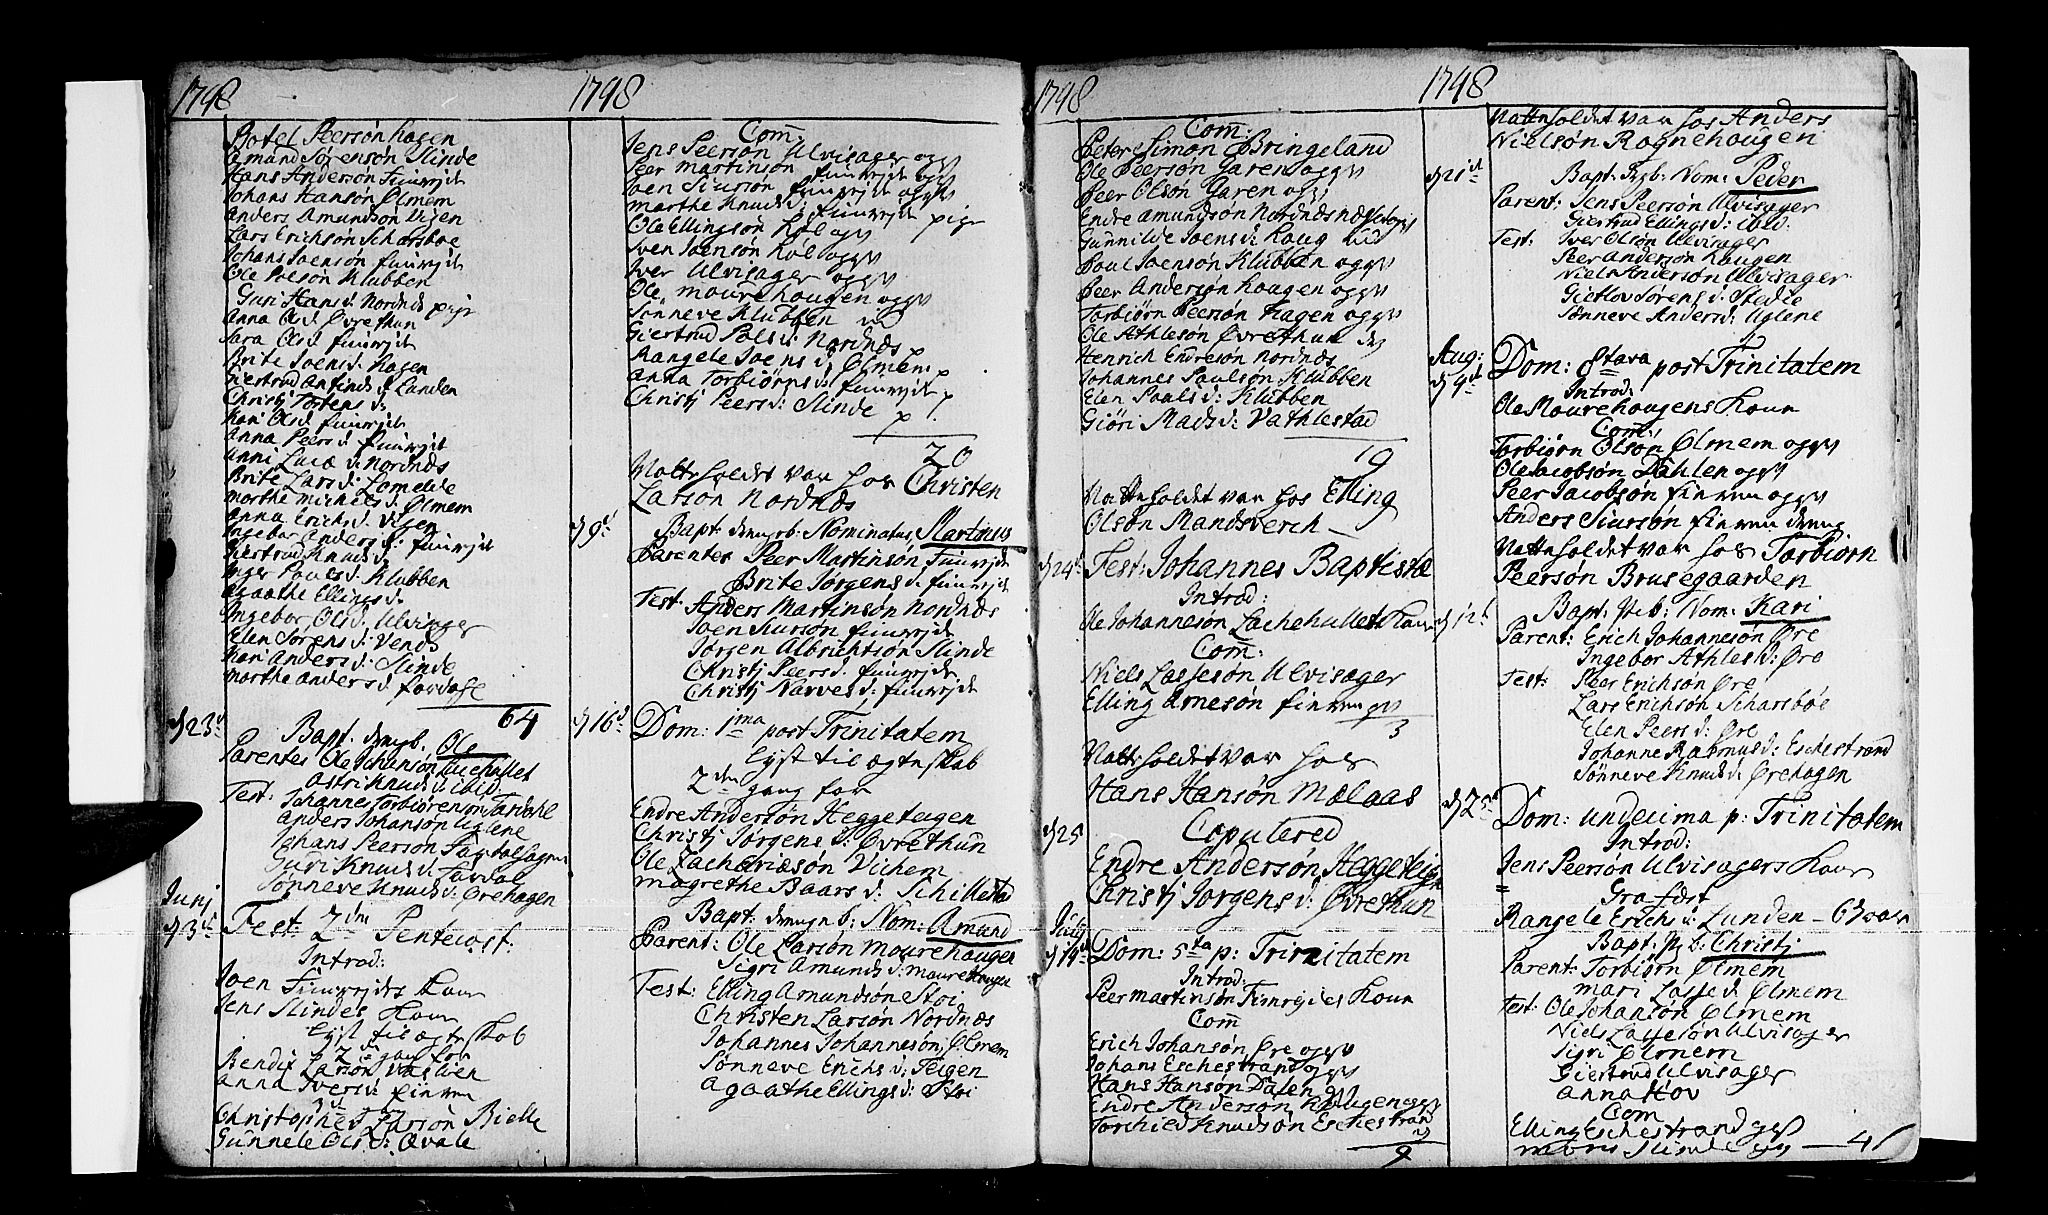 1748
Botel Peersön Hagen
Amund Sörensön Slinde
Hans Andersön Fimrejte
Johans Hansön Ölmem
Anders Amundsön Vigen
Lars Erichsön Scharsböe
Johans Joensön fimrejte
Ole Peersön Klubben
Guri Hans d: Nordnæs pige
Anna Ols d. Øvrethun
Sara Ols d. fimrejte
Brite Joens d: Hagen
Giertrud Anfinds d: Lunden
Christj Torstens d:
Kari Ols d: fimrejte
Anna Peers d. fimrejte
Anni Lucæ d: Nordnæs
Brite Lars d: Lomelde
Marthe Michels d: Ølmem
Anna Erichs d. Vigen
Ingebor Anders d: fimrejte
Giertrud Knuds d:
Inger Pouls d: Klubben
Agaathe Ellings d:
Ingebor Ols d: Ulvisager
Elen Sörens d: Vends
Kari Anders d: Slinde
Marthe Anders d: fardahl
64
d 23 d
Bapt. drengb. Ole
Parentes Ole Johanson Lachehullet
Ostri Knuds d: ibid:
Test: Johannes Torbiörenson Fardahl
Anders Johansön Uglene
Johans Peersön
Guri Knuds d: Fardal
Sönneve Knuds d: Ørehagen
Junj
d 3 d
Fest: 2 den Pentecost:
Introd:
Joen Fimrejtes Kone
Jens Slindes Kone
Lyst til ægteskab
2 den gang for
Bendix Larsön
Anna Ivers d: finren
3 d
Christopher Larsön Bielle
Gunnele Ols d: Qvale
1748
Com:
Jens Peersön Ulvisager ogg
Peer Martinson fimrejte ogg
Joen Siursön fimrejte ogg
Marthe Knuds d: fimrejte pige
Ole Ellingsön Høl ogg
Sven Joensön Høl ogg
Iver Ulvisager ogg
Ole Mourehougen ogg
Sönneve Klubben
Giertrud Pols d: Nordnæs
Rangele Joens d: Ølmem p
Anna Torbiörns d: fimrejte p
Christj Peers d: Slinde p
20
Natteholdet var hos Christen
Larson Nordnæs
d 9 d
Bapt. drengb: Nominatus Martinus
Parentes Peer Martinsön Fimrejte
Brite Jörgens d: fimrejte
Test. Anders Martinsön Nordnæs
Joen Siursön fimrejte
Jörgen Albrichtsön Slinde
Christj Peers d. fimrejte
Christj Narves d: fimrejte
d 16 d
Dom: 1ma post Trinitatem
Lyst til ægteskab
2 den gang for
Endre Andersön Heggeteigen
Christj Jörgens d: Øvrethun
Ole Zachariæsön Vichem
Magrethe Baars d: Schillestad
Bapt: drengeb: Nom: Amund
Parent: Ole Larsön Mourehougen
Sigri Amunds d: Mourehougen
Test: Elling Amundsön Stoi
Christen Larsön Nordnæs
Johannes Johannesön Ølmem
Sönneve Erichs d: Teigen
Agaathe Ellings d: Stoi
1748
Com:
Peter Simon Bringeland
Ole Peersön Garen ogg
Peer Olsön Garen ogg
Endre Amundsön Nordnæs
Gunnilde Joens d: Haug
Poul Joensön Klubben ogg
Peer Andersön Hougen ogg
Torbiörn Peersön Hagen ogg
Ole Athlesön Øvrethun
Henrich Endresön Nordnæs
Johannes Paulsön Klubben
Elen Pouls d: Klubben
Giöri Mads d: Vathlestad
19
Natteholdet var hos Elling
Olsön Mandsverch
d 24 d
Fest: Johannes Baptistæ
Introd:
Ole Johannesön Lachehullets Kone
Com:
Niels Lassesön Ulvisager
Elling Arnesön finren
3
Natteholdet var hos
Hans Hansön Mælaas
d 25
Copulered
Endre Andersön Heggeteign
Christj Jörgens d: Øvrethun
July
d 14 d
Dom: 5ta p: Trinitatem
Introd:
Peer Martinsön Fimrejtes Kone
Com
Erich Johansön Øre ogg
Johans Eschestrand ogg
Hans Hansön Dalen
Endre Andersön
Torchild Knudsön Eschestrand
9
1748
Natteholdet var hos Anders
Nielsön Rognehougen
d 21 d
Bapt: Pigb: Nom: Peder
Parent: Jens Peersön Ulvisager
Giertrud Ellings d: ibid:
Test: Iver Olsön Ulvisager
Peer Andersön Hougen
Niels Andersön Ulvisager
Gietlov Sörens d: Stedie
Sönneve Anders d: Uglene
Aug:
d 4 d
Dom: 8tava post Trinitatem
Introd:
Ole Mourehougens Kone
Com:
Torbiörn Olsön Ølmem ogg
Ole Jacobsön Dahlen ogg
Peer Jacobsön finren ogg
Anders Siursön finren dreng
Natteholdet var hos Torbiörn
Peersön Brusegaarden
d 12 d
Bapt: Pieb: Nom: Kari
Parent: Erich Johannesön Øre
Ingebor Athles d: Øre
Test: Peer Erichsön Øre
Lars Erichsön Scharsböe
Elen Peers d: Øre
Johanne Rasmus d: Eschestrand
Sönneve Knuds d: Ørehagen
d 25 d
Dom: undecima p: Trinitatem
Introd:
Jens Peersön Ulvisagers Kone
Grafæst
Rangele Erichs d: Lunden – 6
Bapt: P. b: Christj
Parent: Torbiörn Ølmem
Mari Lasse d: Ølmem
Test: Ole Johansön Ølmem
Niels Lassesön Ulvisager
Sigri Ølmem
Giertrud Ulvisager
Anna Hov
Com
Elling Eschestrand
Slinde 4